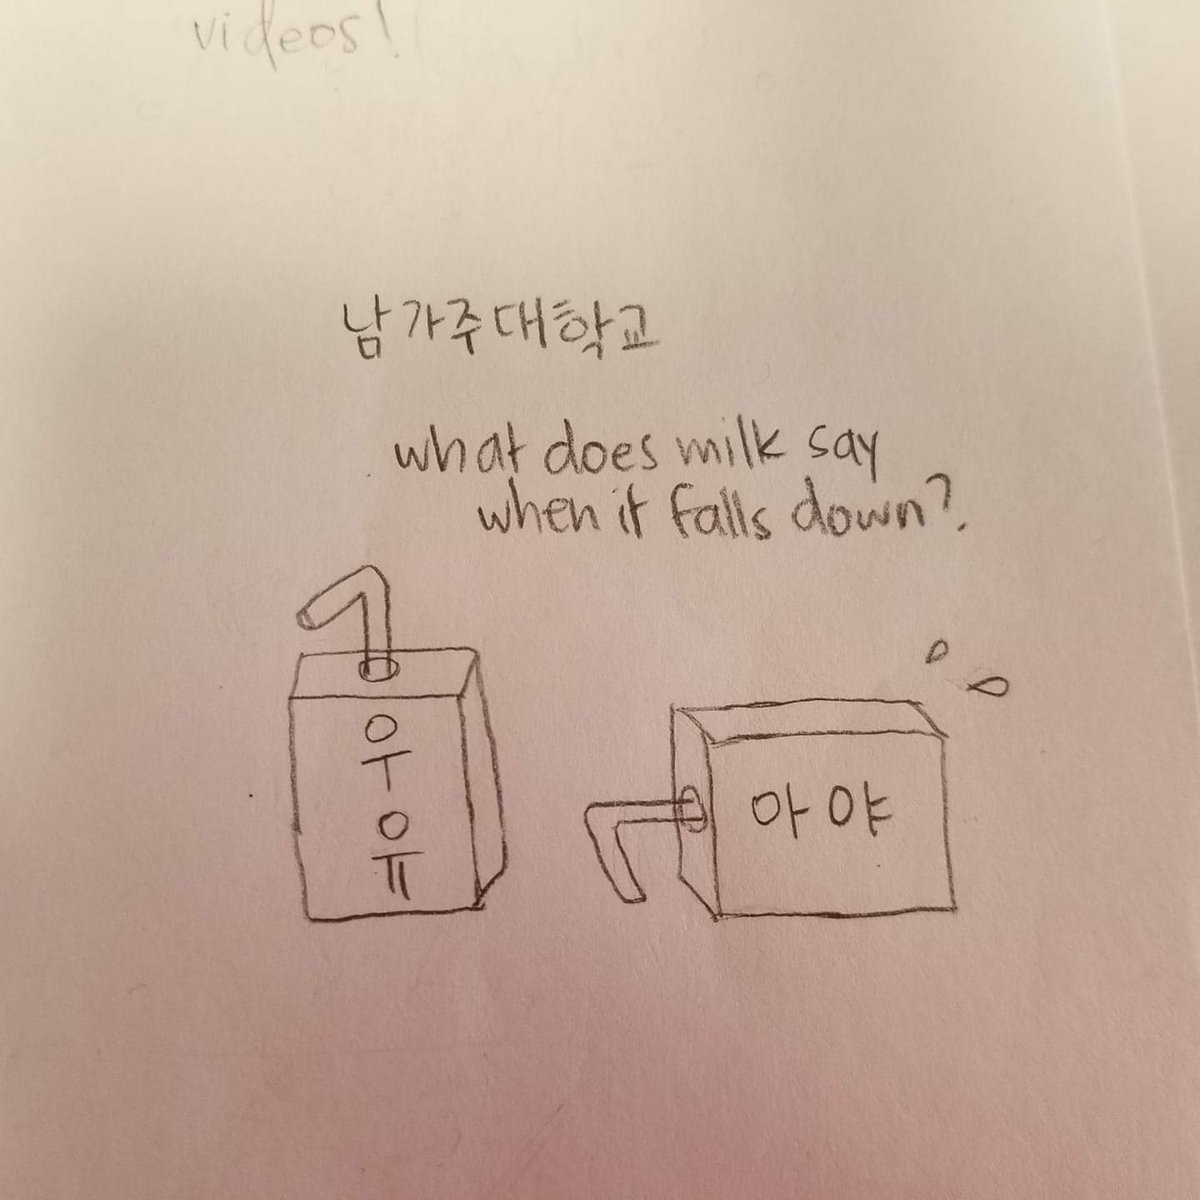 videos!
남가주대학교
what does milk say
when it falls down?
우
유
아야